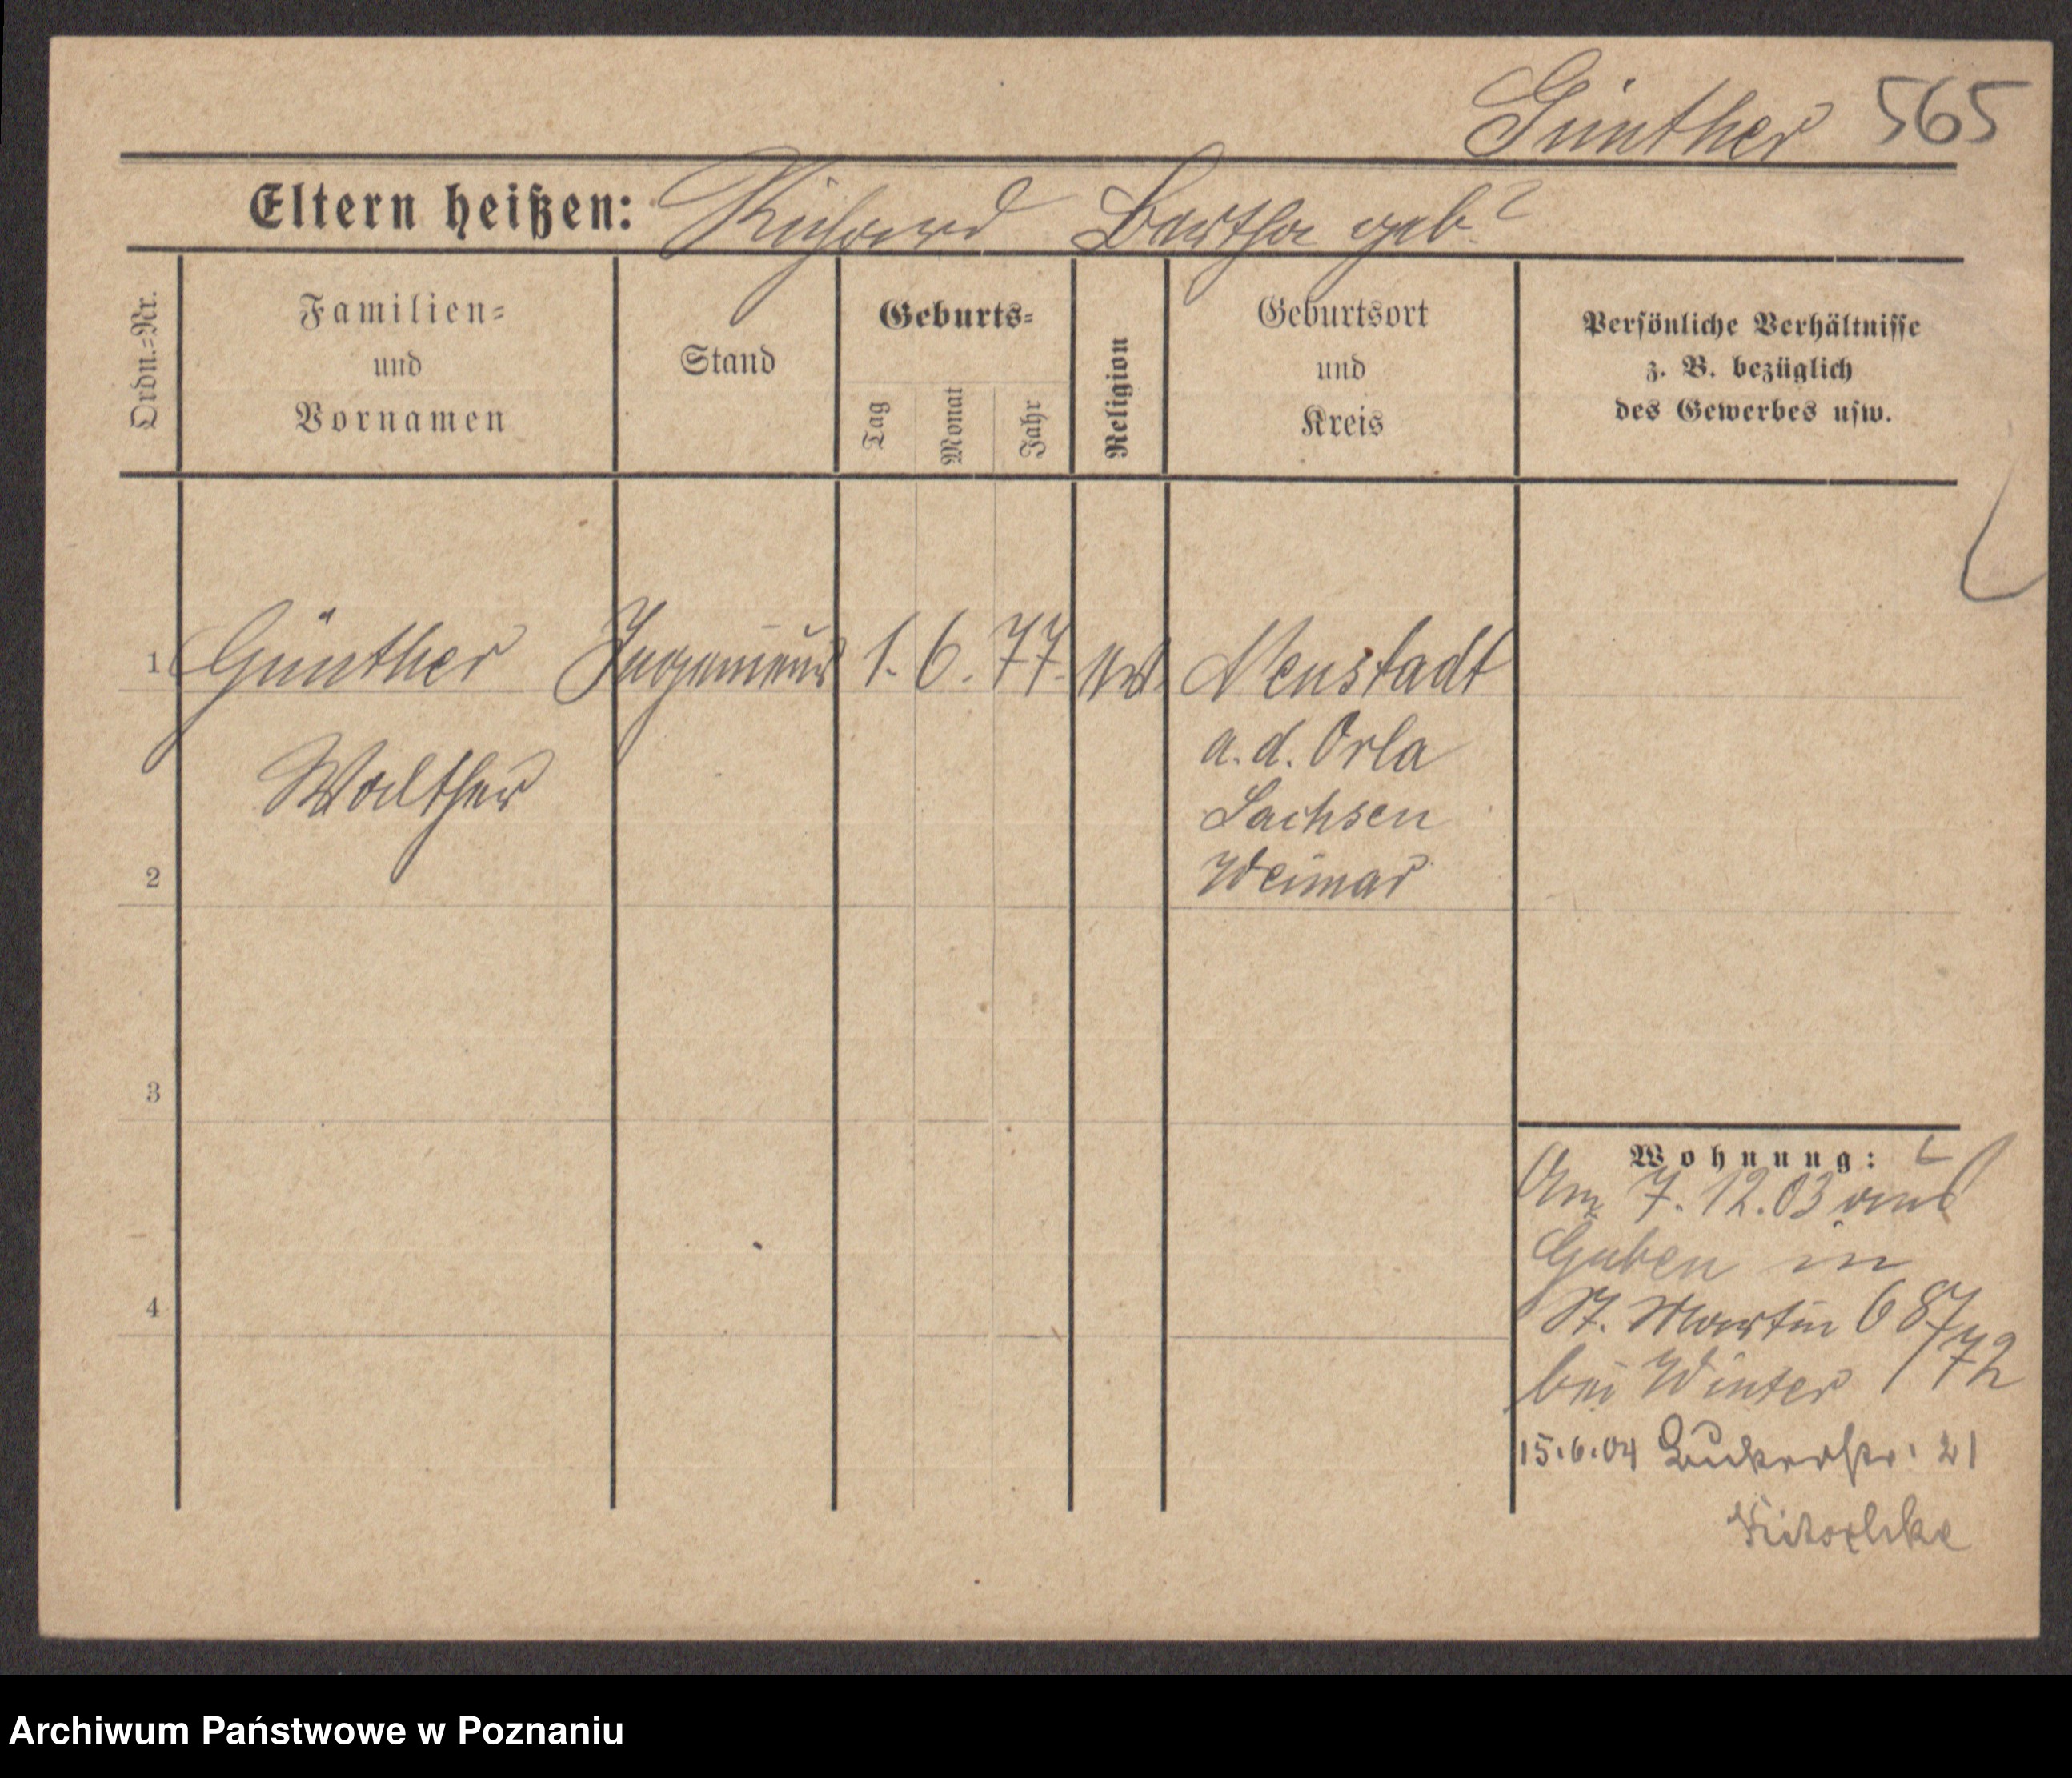 Günther 565
Eltern heißen: Richard Bertha geb?
Ordn.=Nr.
Familien=
und
Vornamen
Stand
Geburts=
Tag
Monat
Jahr
Religion
Geburtsort
und
Kreis
Persönliche Verhältnisse
z. B. bezüglich
des Gewerbes usw.
1 Günther Ingenieur 1. 6. 77. Neustadt
a. d. Orla
Walther
Sachsen
Weimar
2
3
4
Wohnung:
Am 7. 12. 03 aus
Guben in
St. Martin 68
bei Winter
15.6.04 21
Archiwum Państwowe w Poznaniu